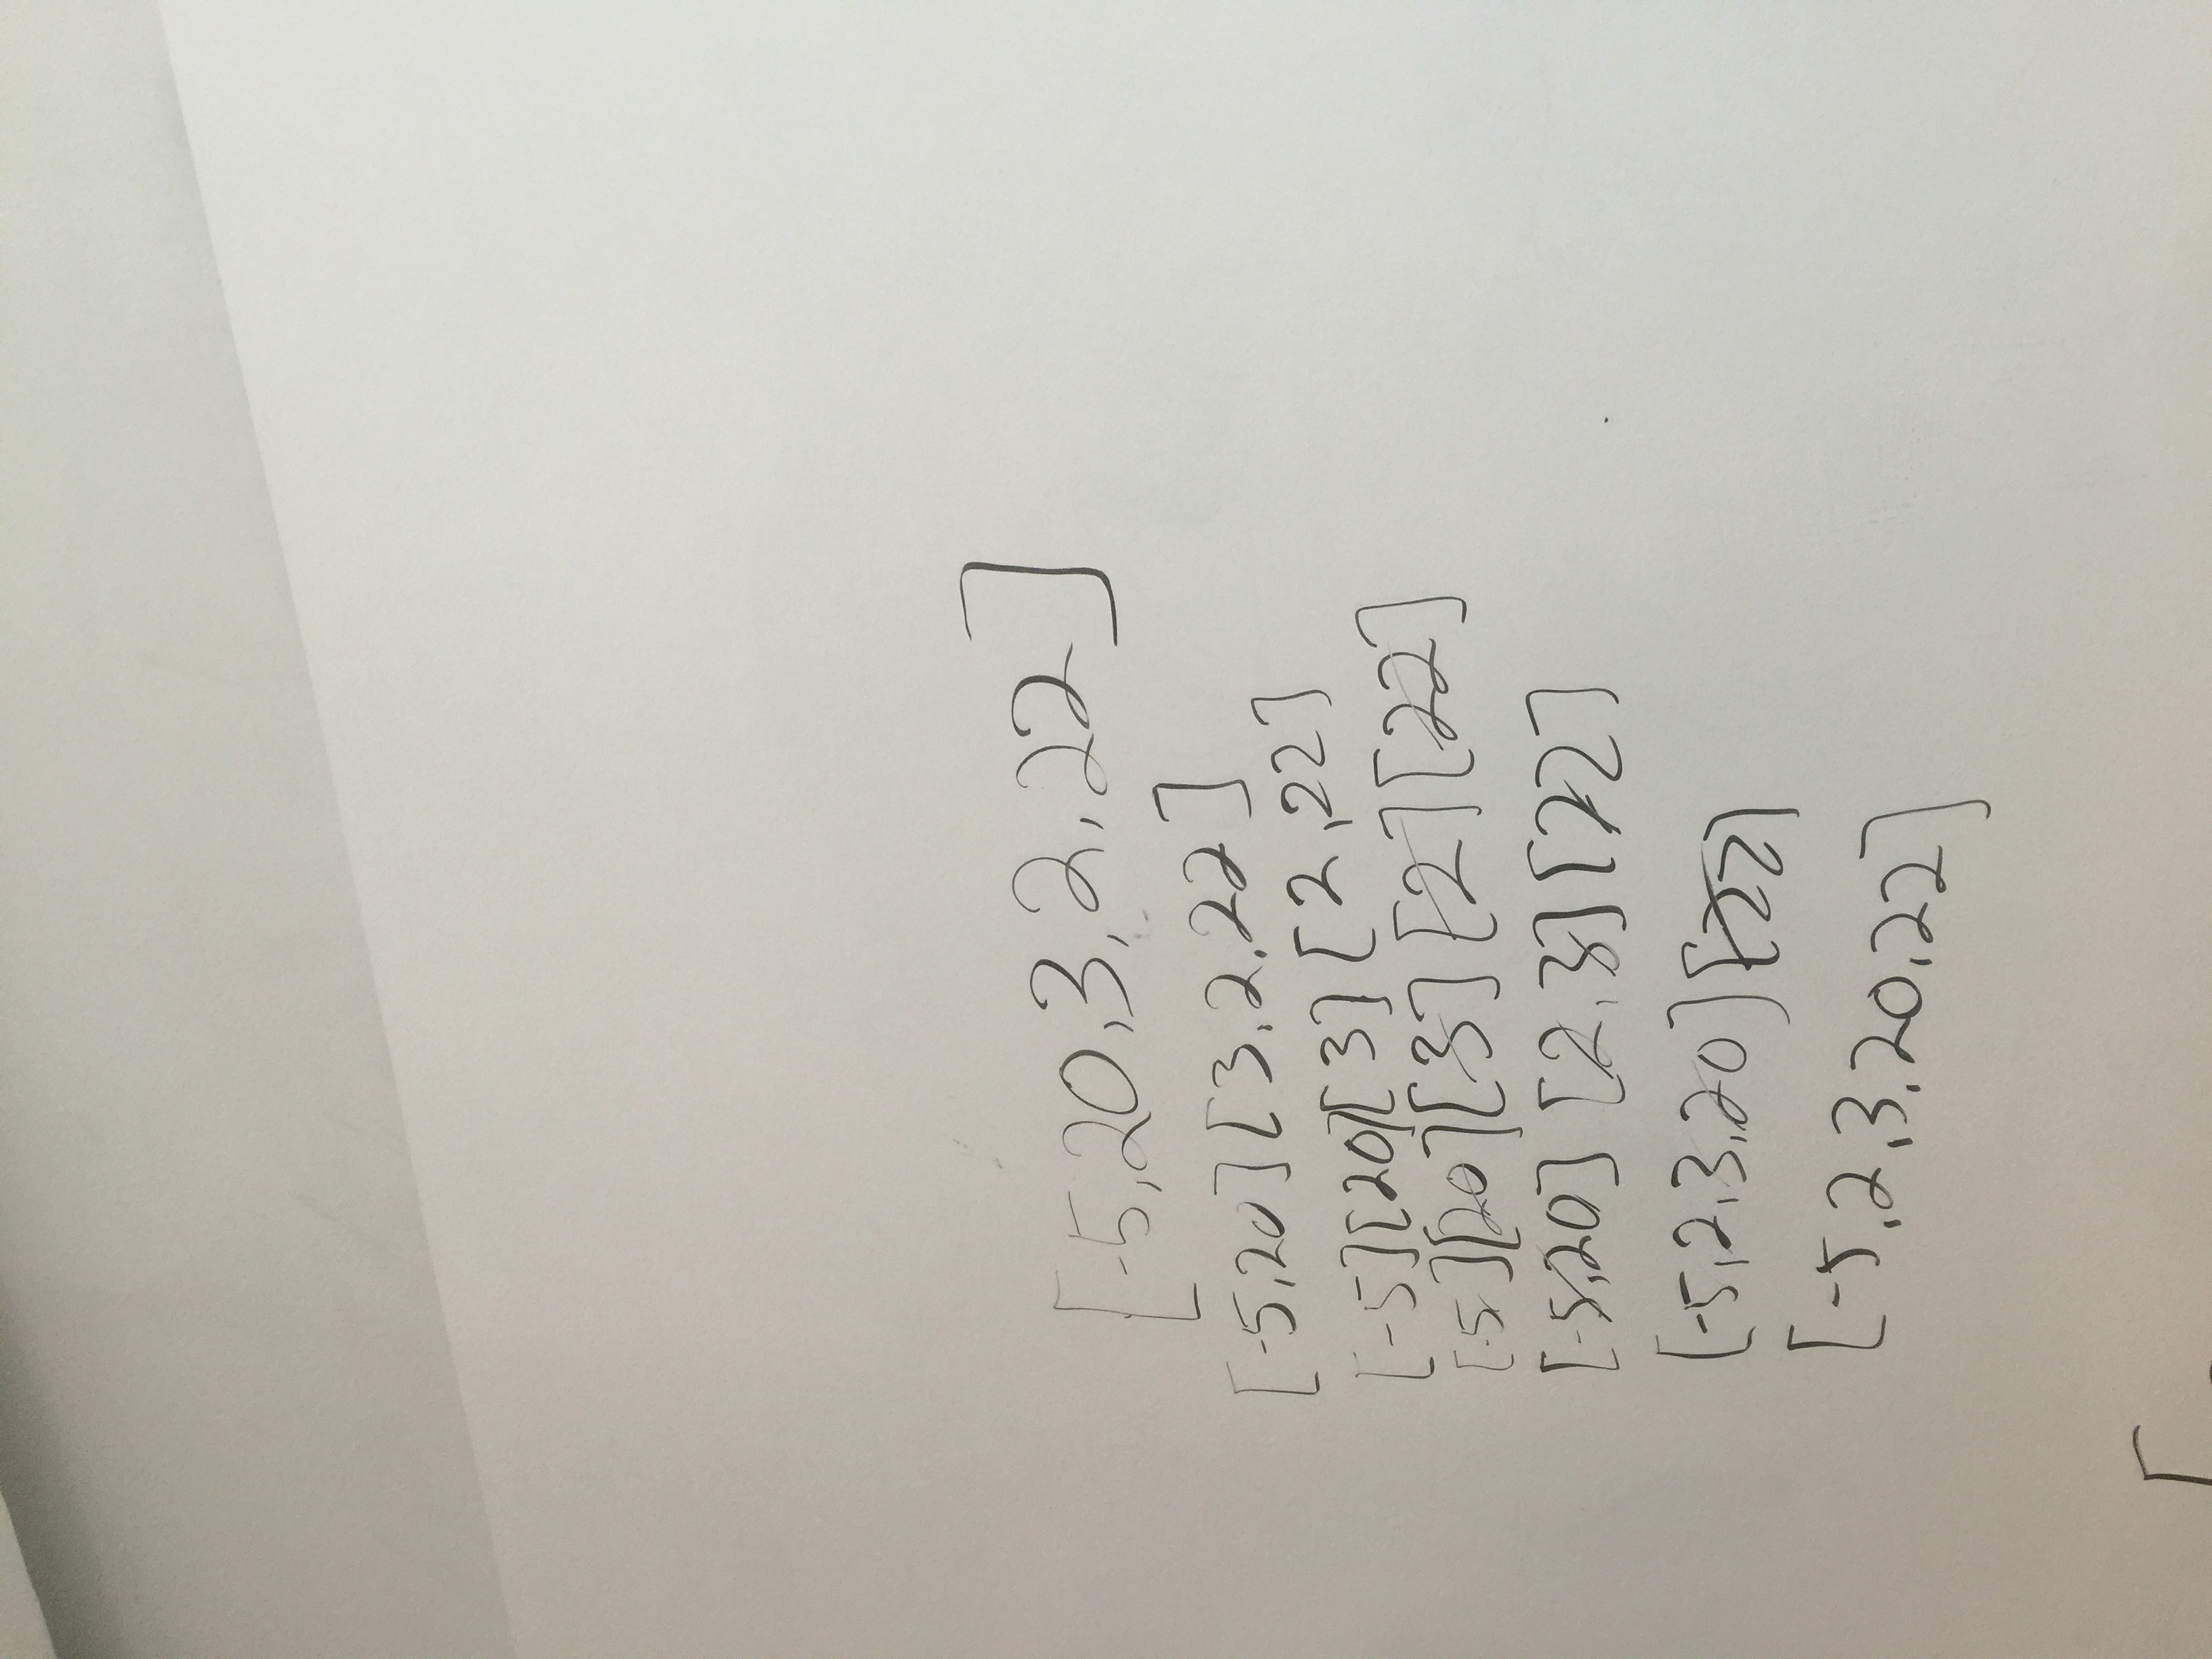 [-5,20,3,2,22]
[-5,20][3,2,22]
[-5][20][3][2,22]
[-5][20][3][2][22]
[-5,20][2,3][22]
[-5,2,3,20][22]
[-5,2,3,20,22]
[